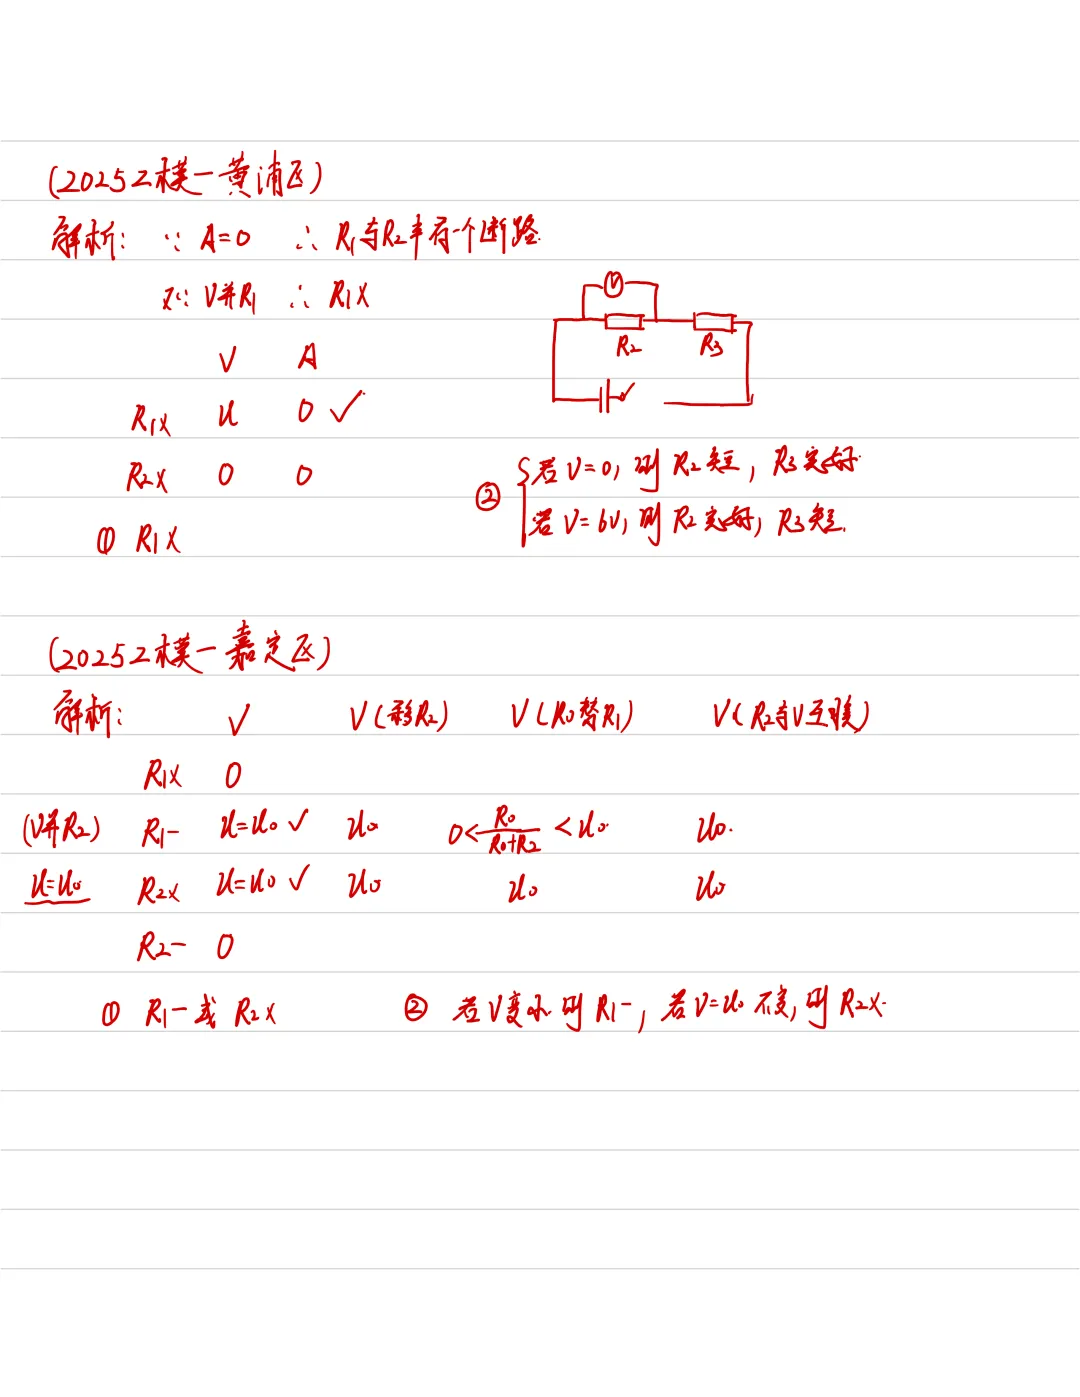 (2025二模—黄浦区)
解析: ∵ A=0 ∴ R₁与R₂中有一个断路.
又∵ V并R₁ ∴ R₁×
V A
R₁× U 0 ✓
R₂× 0 0
① R₁×
V
R₂ R₃
② { 若V=0, 则R₂短, R₃完好.
若V=6V, 则R₂完好, R₃短.
(2025二模—嘉定区)
解析: V V(移R₂) V(R₀替R₁) V(R₂与V互换)
R₁× 0
(V并R₂) R₁— U=U₀ ✓ U₀ 0<R₀/(R₀+R₂)<U₀. U₀.
U=U₀ R₂× U=U₀ ✓ U₀ U₀ U₀
R₂— 0
① R₁—或R₂× ② 若V变小则R₁—, 若V=U₀不变, 则R₂×.